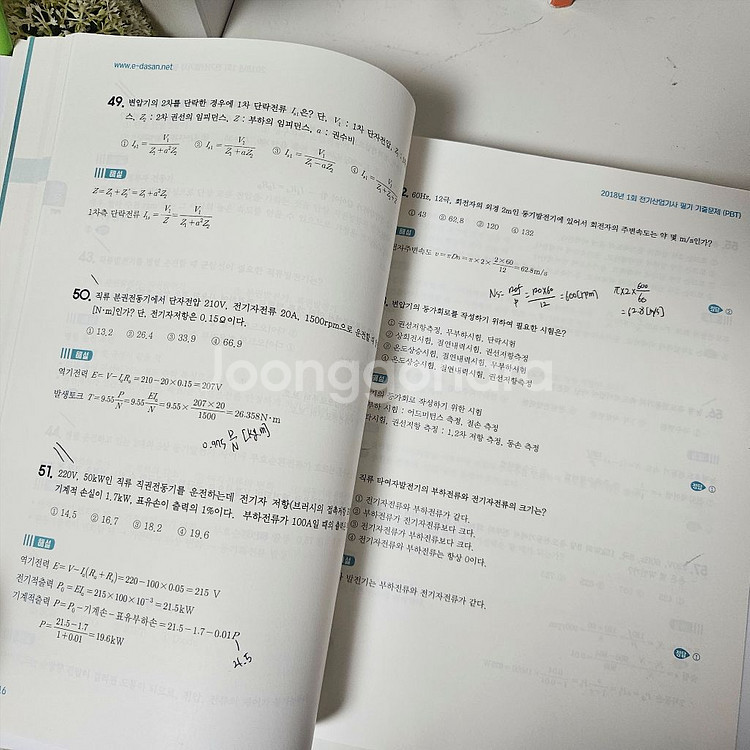 www.e-dasan.net
49. 변압기의 2차를 단락한 경우에 1차 단락전류 Is1은? 단, V1 : 1차 단자전압, Z1
스, Z2 : 2차 권선의 임피던스, Z : 부하의 임피던스, a : 권수비
① Is1 = V1/(Z1+a²Z2) ② Is1 = V1/(Z1+aZ2) ③ Is1 = V1/(Z1-aZ2) ④ Is1 = V1
해설
Z=Z1+Z2'=Z1+a²Z2
1차측 단락전류 Is1=V1/Z=V1/(Z1+a²Z2)
50. 직류 분권전동기에서 단자전압 210V, 전기자전류 20A, 1500rpm으로 운전할
[N·m]인가? 단, 전기자저항은 0.15Ω이다.
① 13.2 ② 26.4 ③ 33.9 ④ 66.9
해설
역기전력 E=V-IaRa=210-20×0.15=207V
발생토크 T=9.55 P/N=9.55 EIa/N=9.55×(207×20)/1500=26.358N·m
0.975 P/N [kg.m]
51. 220V, 50kW인 직류 직권전동기를 운전하는데 전기자 저항(브러시의 접촉저항
기계적 손실이 1.7kW, 표유손이 출력의 1%이다. 부하전류가 100A일 때의 출력은
① 14.5 ② 16.7 ③ 18.2 ④ 19.6
해설
역기전력 E=V-Ia(Ra+Rs)=220-100×0.05=215 V
전기적출력 P0=EIa=215×100×10⁻³=21.5kW
기계적출력 P=P0-기계손-표유부하손=21.5-1.7-0.01P
P=(21.5-1.7)/(1+0.01)=19.6kW
21.5
16
2018년 1회 전기산업기사 필기 기출문제 (PBT)
2. 60Hz, 12극, 회전자의 외경 2m인 동기발전기에 있어서 회전자의 주변속도는 약 몇 m/s인가?
① 43 ② 62.8 ③ 120 ④ 132
해설
전자주변속도 v=πDn=π×2×(2×60)/12=62.8m/s
Ns=120f/P=(120×60)/12=600[rpm]
π×2×600/60
=62.8[m/s]
정답 ②
변압기의 등가회로를 작성하기 위하여 필요한 시험은?
① 권선저항측정, 무부하시험, 단락시험
② 상회전시험, 절연내력시험, 권선저항측정
③ 온도상승시험, 절연내력시험, 무부하시험
④ 온도상승시험, 절연내력시험, 권선저항측정
해설
의 등가회로 작성하기 위한 시험
부하 시험 : 어드미턴스 측정, 철손 측정
단락시험, 권선저항 측정 : 1,2차 저항 측정, 동손 측정
정답 ①
직류 타여자발전기의 부하전류와 전기자전류의 크기는?
① 전기자전류와 부하전류가 같다.
② 부하전류가 전기자전류보다 크다.
③ 전기자전류가 부하전류보다 크다.
④ 전기자전류와 부하전류는 항상 0이다.
해설
발전기는 부하전류와 전기자전류가 같다.
정답 ①